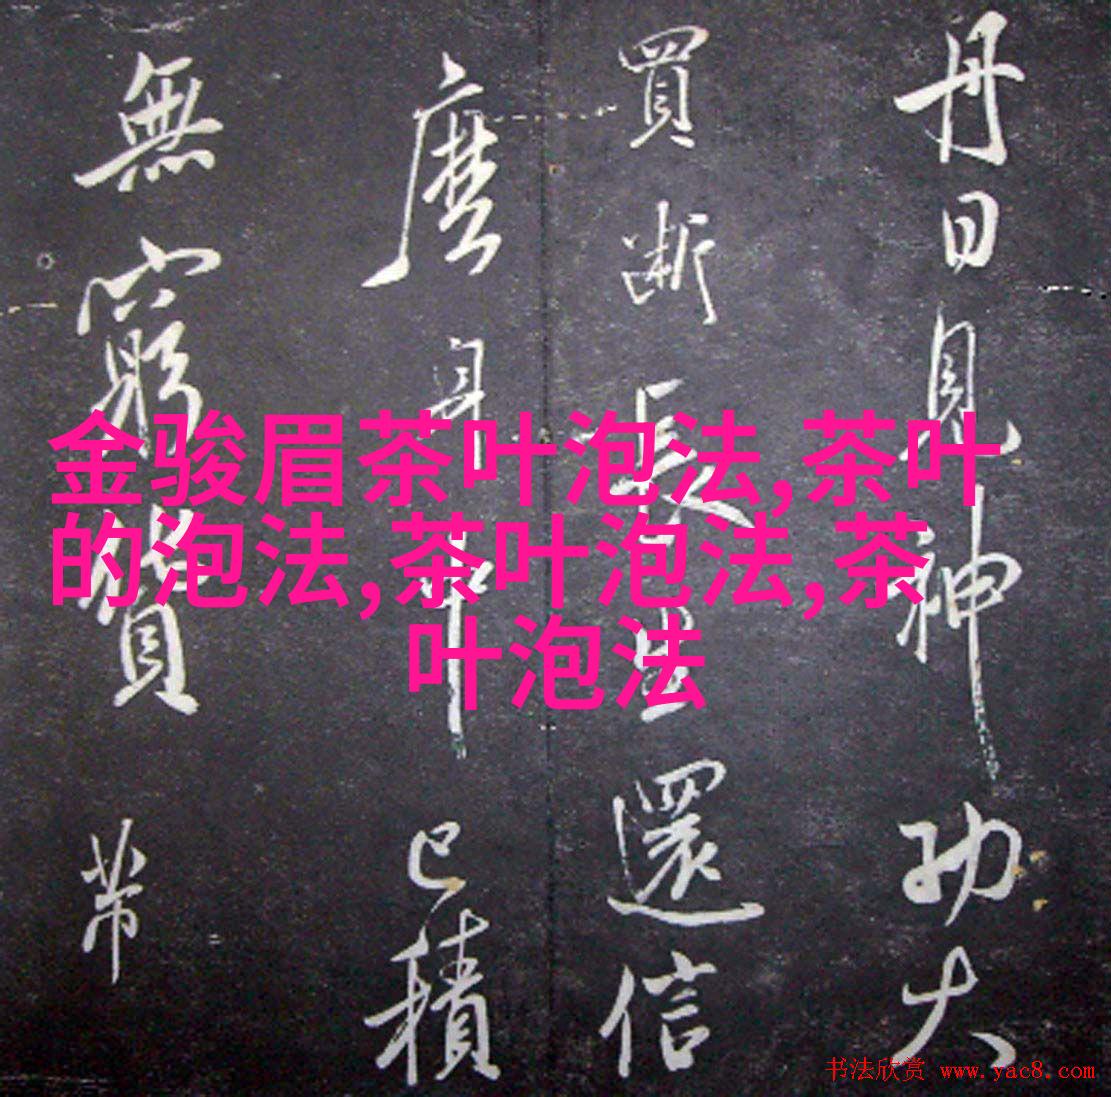 丹日見神功大
買斷長生還信
麼身中已積
無窮貨帶
金骏眉茶叶泡法,茶叶
的泡法,茶叶泡法,茶
叶泡法
书法欣赏 www.yac8.com